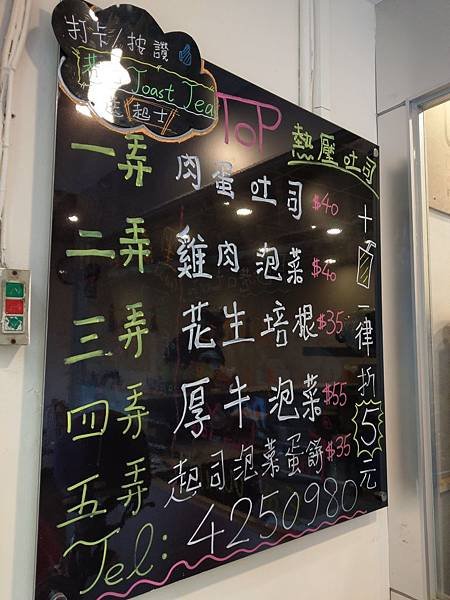 打卡/按讚
Toast Tea
送起士
TOP
熱壓吐司
一弄 肉蛋吐司 $40
二弄 雞肉泡菜 $40
三弄 花生培根 $35
四弄 厚牛泡菜 $55
五弄 起司泡菜蛋餅 $35
十 一律折5元
Tel: 4250980